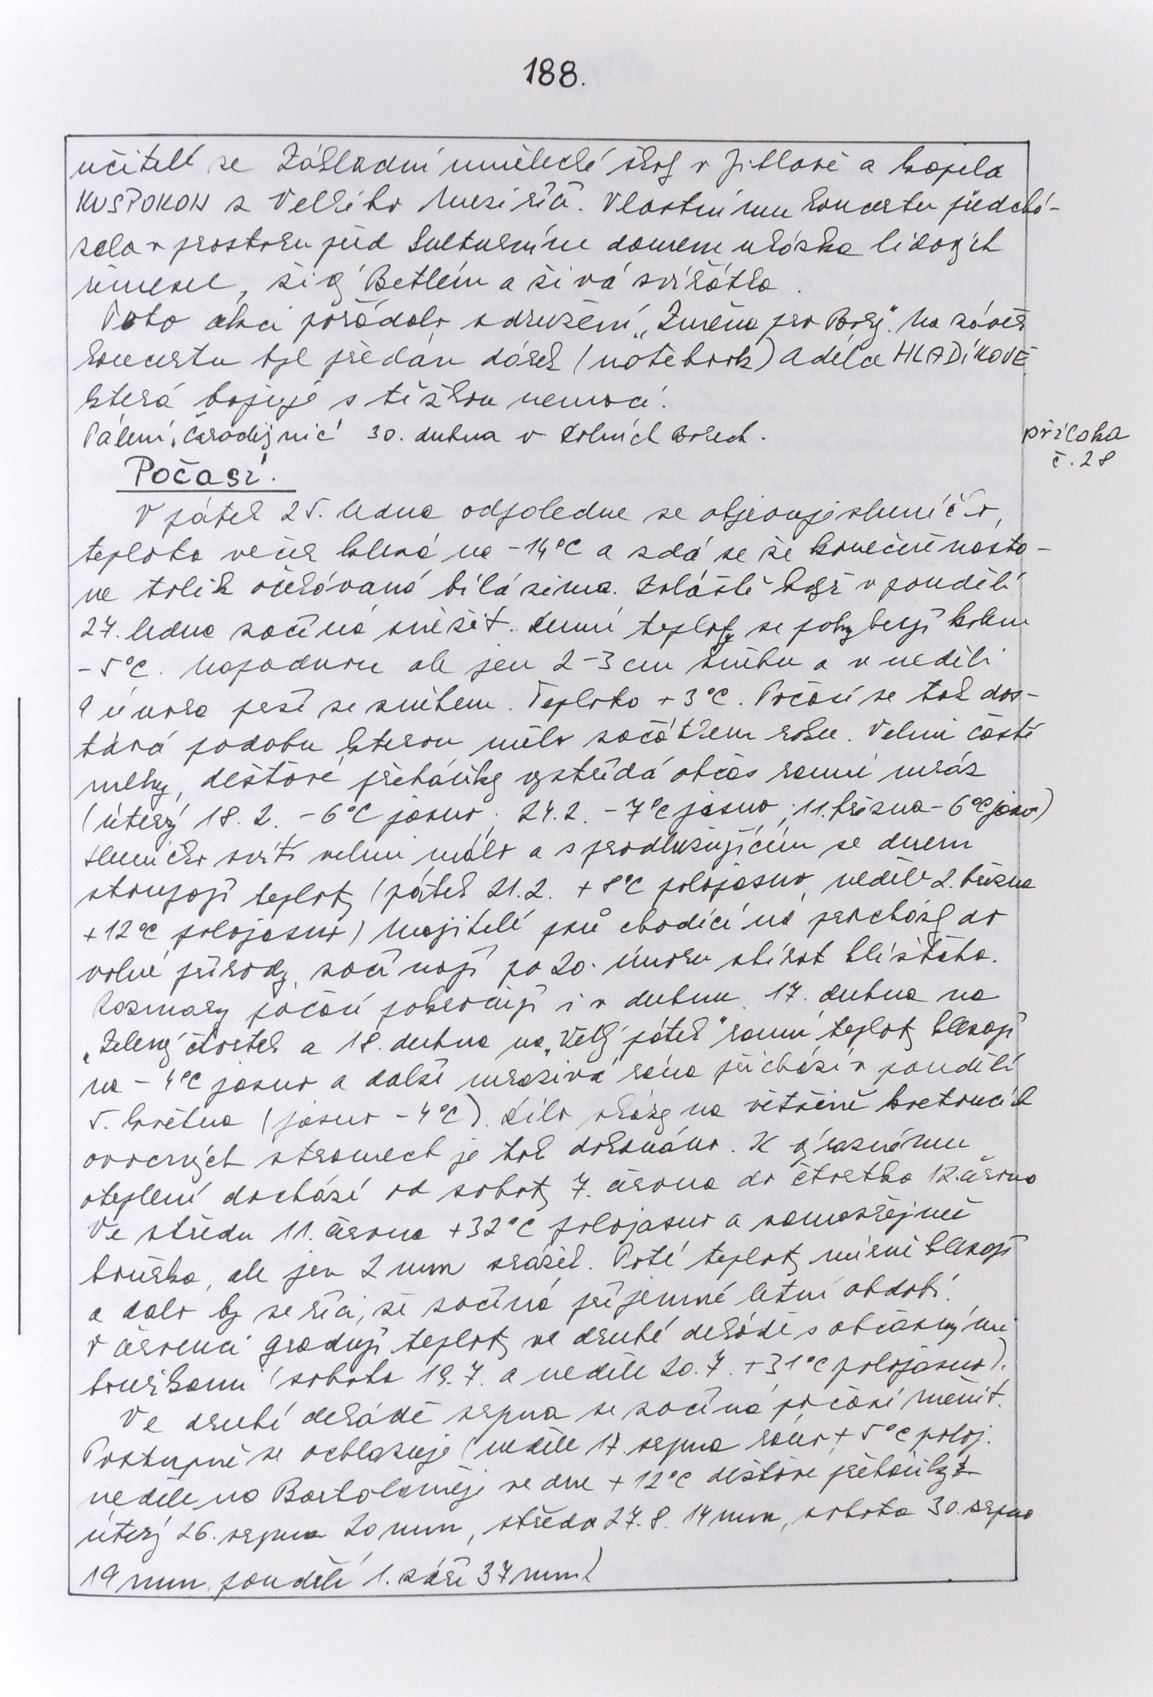 188.
učitelé ze Základní umělecké školy v Jihlavě a kapela
KUSPOKON z Velkého Meziříčí. Vlastnímu koncertu předchá-
zela v prostoru před kulturním domem ukázka lidových
řemesel, živý Betlém a živá zvířátka.
Tuto akci pořádalo sdružení „Změna pro Bory". Na závěr
koncertu byl předán dárek (notebook) Adélce HLADÍKOVÉ
která bojuje s těžkou nemocí.
Pálení „čarodějnic" 30. dubna v Dolních Borech.
příloha
č. 28
Počasí.
V pátek 25. ledna odpoledne se objevuje sluníčko,
teplota večer klesá na -14°C a zdá se že konečně nasta-
ne tolik očekávaná bílá zima. Zvláště když v pondělí
27. ledna začíná sněžit. Denní teploty se pohybují kolem
-5°C. Napadnou ale jen 2-3 cm sněhu a v neděli
února déšť se sněhem. Teplota +3°C. Počasí se tak dos-
tává podobu kterou mělo začátkem roku. Velmi časté
mlhy, dešťové přeháňky vystřídá občas ranní mráz
(úterý 18. 2. -6°C jasno, 24.2. -7°C jasno, 11. března -6°C jasno)
Sluníčko svítí velmi málo a s prodlužujícím se dnem
stoupají teploty (pátek 21.2. +8°C polojasno, neděle 2. března
+12°C polojasno) Majitelé psů chodící na procházky do
volné přírody, začínají po 20. únoru sbírat klíšťata.
Rozmary počasí pokračují i v dubnu. 17. dubna na
„Zelený čtvrtek a 18. dubna na „Velký pátek" ranní teploty klesají
na -4°C jasno a další mrazivá rána přichází v pondělí
5. května (jasno -4°C). Dílo zkázy na většině kvetoucích
ovocných stromech je tak dokonáno. K výraznému
oteplení dochází od soboty 7. června do čtvrtka 12. června
Ve středu 11. června +32°C polojasno a samozřejmě
bouřka, ale jen 2 mm srážek. Poté teploty mírně klesají
a dalo by se říci, že začíná příjemné letní období.
V červenci gradují teploty ve druhé dekádě s občasnými
bouřkami (sobota 19.7. a neděle 20.7. +31°C polojasno).
Ve druhé dekádě srpna se začíná počasí měnit.
Postupně se ochlazuje (neděle 17. srpna ráno +5°C poloj.
neděle na Bartoloměje ve dne +12°C dešťové přeháňky
úterý 26. srpna 20 mm, středa 27.8. 14 mm, sobota 30. srpna
19 mm, pondělí 1. září 37 mm)